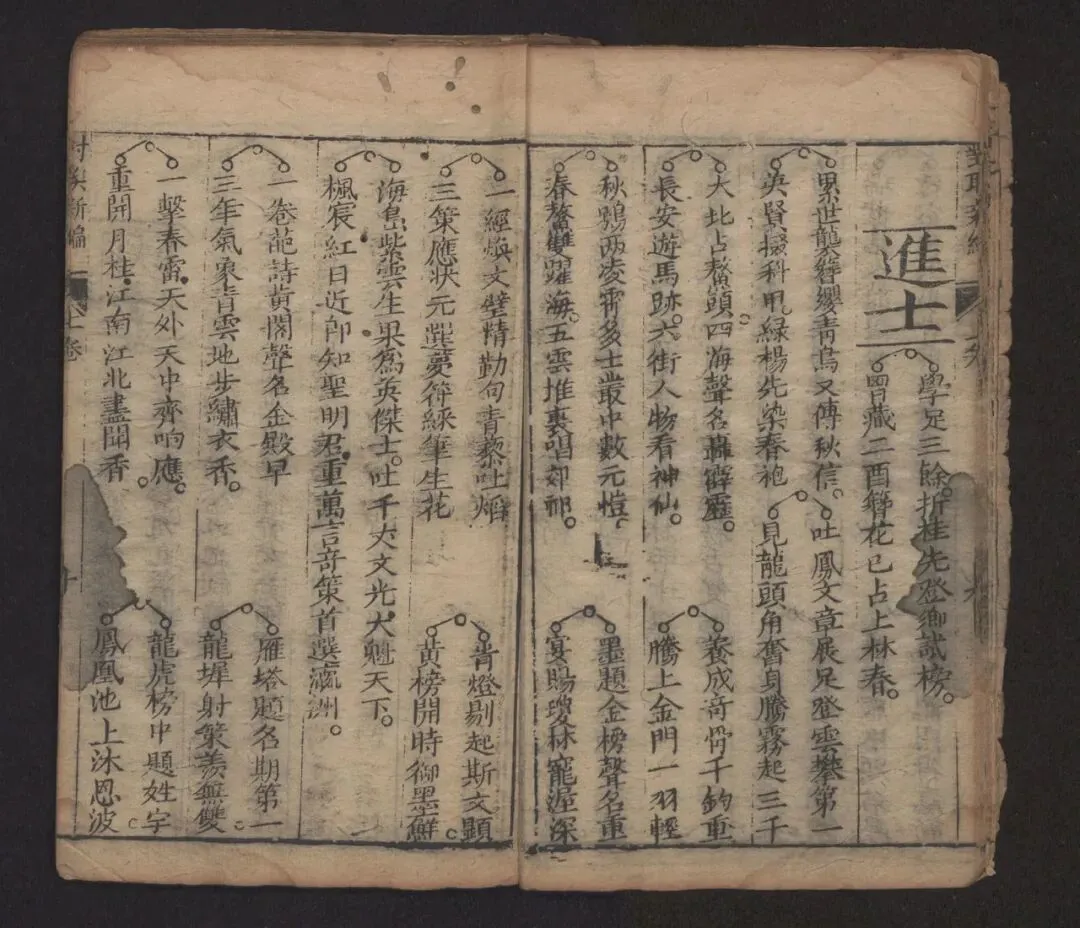 進士
學足三餘折桂先登鄉試榜。
曾藏二酉簪花已占上林春。
累世襲簪纓青烏又傳秋信。
英賢掇科甲。綠楊先染春袍
吐鳳文章展足登雲攀第一
見龍頭角奮身騰霧起三千
大北占鰲頭四海聲名轟霹靂。
長安遊馬跡。六街人物看神仙。
養成奇骨千鈞重
騰上金門一羽輕
秋鶚两凌霄多士叢中數元愷。
春鰲雙躍海。五雲堆裏唱郊祁。
墨題金榜聲名重
宴賜瓊林寵渥深
一經煥文璧情勤句青藜吐焰
三策應狀元選夢符綵筆生花
青燈剔起斯文顯
黄榜開時御墨鮮
海島紫雲生果爲英傑士。吐千丈文光大魁天下。
楓宸紅日近即知聖明君重萬言奇策首選瀛洲。
一卷葩詩黄閣聲名金殿早
三年氣象青雲地步繡衣香。
雁塔題名期第一
龍墀射策羨無雙
一擊春雷天外天中齊响應。
重開月桂江南江北盡聞香。
龍虎榜中題姓字
鳳凰池上沐恩波
新編
七卷
十